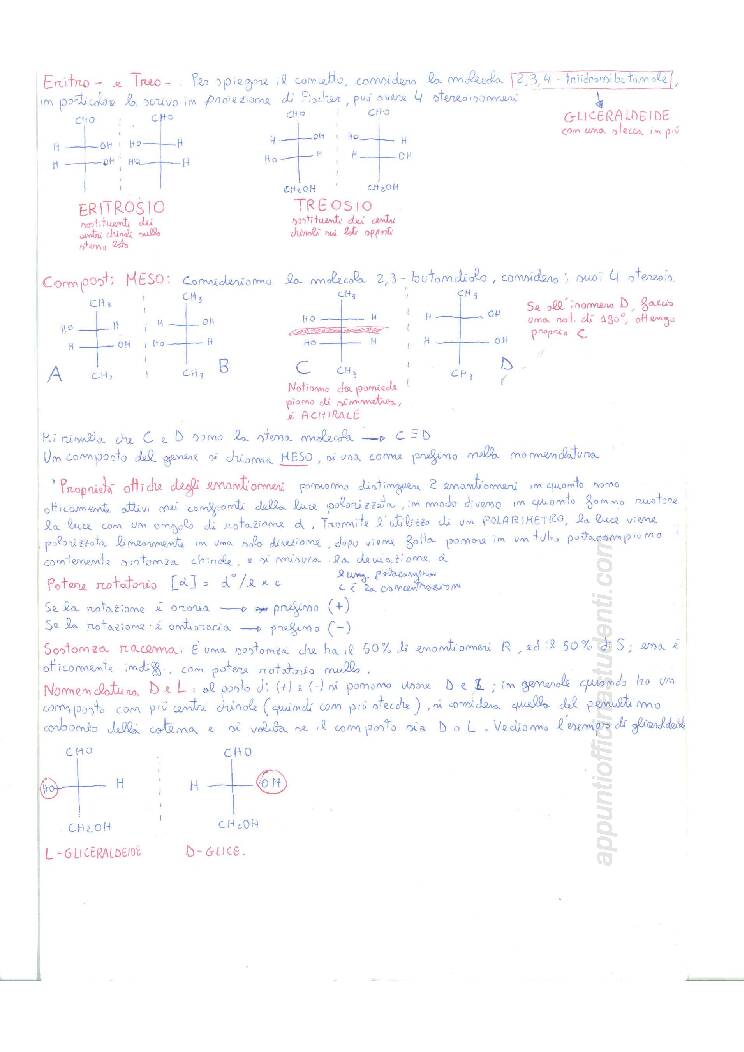 Eritro- e Treo-. Per spiegare il concetto, considero la molecola 2,3,4-triidrossibutanale,
in particolare la scrivo in proiezione di Fischer, può avere 4 stereoisomeri
GLICERALDEIDE
con una stecca in più
CHO CHO CHO CHO
H OH HO H H OH HO H
H OH HO H HO H H OH
CH2OH CH2OH
ERITROSIO TREOSIO
sostituenti dei
centri chirali sullo
stesso lato
sostituenti dei centri
chirali sui lati opposti
Composti MESO: Consideriamo la molecola 2,3-butandiolo, considero i suoi 4 stereois.
CH3 CH3 CH3 CH3
HO H H OH HO H H OH
H OH HO H HO H H OH
A CH3 CH3 B C CH3 CH3 D
Se all'isomero D, faccio
una rot. di 180°, ottengo
proprio C
Notiamo che possiede
piano di simmetria,
è ACHIRALE
Mi risulta che C e D sono la stessa molecola → C≡D
Un composto del genere si chiama MESO, si usa come prefisso nella nomenclatura
Proprietà ottiche degli enantiomeri possiamo distinguere 2 enantiomeri in quanto sono
otticamente attivi nei confronti della luce polarizzata, in modo diverso in quanto fanno ruotare
la luce con un angolo di rotazione α. Tramite l'utilizzo di un POLARIMETRO, la luce viene
polarizzata linearmente in una sola direzione, dopo viene fatta passare in un tubo portacampione
contenente sostanza chirale, e si misura la deviazione α
Potere rotatorio [α] = α°/l x c
l lung. portacampione
c è la concentrazione
Se la rotazione è oraria → prefisso (+)
Se la rotazione è antioraria → prefisso (-)
Sostanza racema: È una sostanza che ha il 50% di enantiomeri R, ed il 50% di S; essa è
oticamente indiff., con potere rotatorio nullo.
Nomenclatura D e L: al posto di (+) e (-) si possono usare D e L; in generale quando ho un
composto con più centri chirali (quindi con più stecche), si considera quello del penultimo
carbonio della catena e si valuta se il composto sia D o L. Vediamo l'esempio di gliceraldeide
CHO CHO
HO H H OH
CH2OH CH2OH
L-GLICERALDEIDE D-GLICE.
appuntiofficinastudenti.com